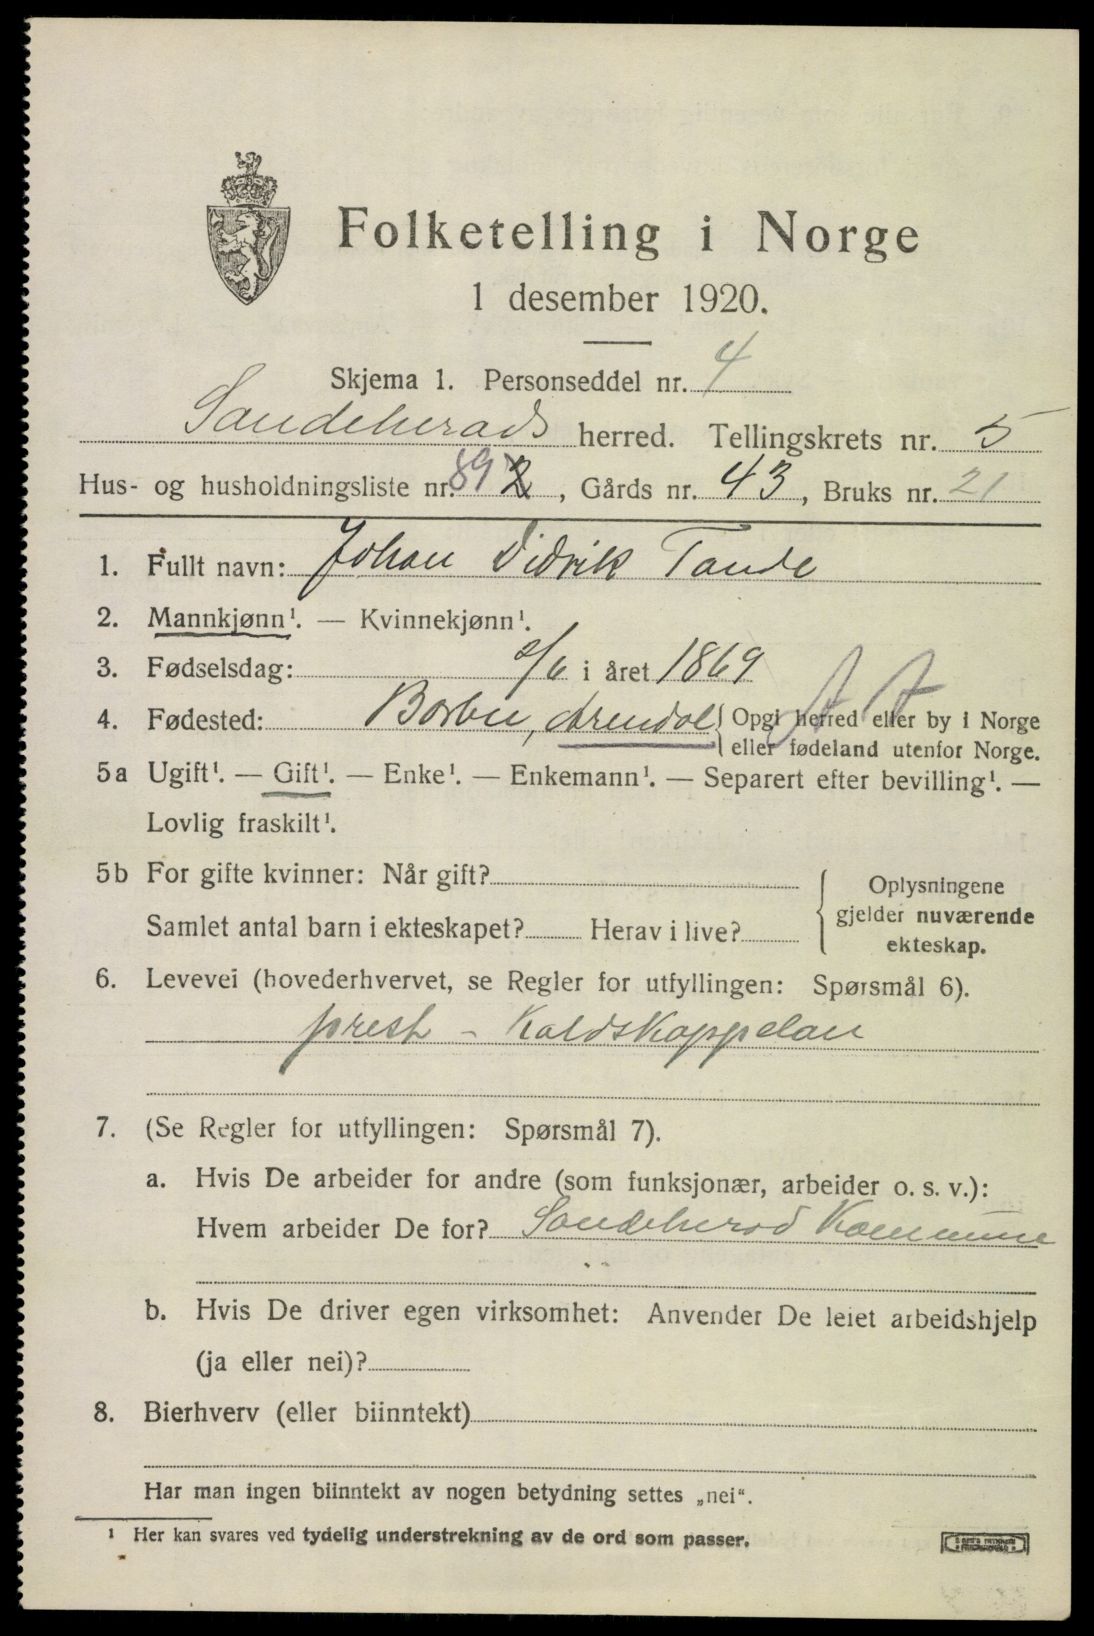 Folketelling i Norge
1 desember 1920.
Skjema 1. Personseddel nr. 4
Sandeherads herred. Tellingskrets nr. 5
Hus- og husholdningsliste nr. 89 2, Gårds nr. 43, Bruks nr. 21
1. Fullt navn: Johan Didrik Tande
2. Mannkjønn¹. — Kvinnekjønn¹.
3. Fødselsdag: 2/6 i året 1869
4. Fødested: Barbu, Arendal { Opgi herred eller by i Norge
eller fødeland utenfor Norge.
5a Ugift¹. — Gift¹. — Enke¹. — Enkemann¹. — Separert efter bevilling¹. —
Lovlig fraskilt¹.
5b For gifte kvinner: Når gift?
Samlet antal barn i ekteskapet? Herav i live?
Oplysningene
gjelder nuværende
ekteskap.
6. Levevei (hovederhvervet, se Regler for utfyllingen: Spørsmål 6).
prest - Kaldskappelan
7. (Se Regler for utfyllingen: Spørsmål 7).
a. Hvis De arbeider for andre (som funksjonær, arbeider o. s. v.):
Hvem arbeider De for? Sandeherad Kommune
b. Hvis De driver egen virksomhet: Anvender De leiet arbeidshjelp
(ja eller nei)?
8. Bierhverv (eller biinntekt)
Har man ingen biinntekt av nogen betydning settes „nei".
¹ Her kan svares ved tydelig understrekning av de ord som passer.